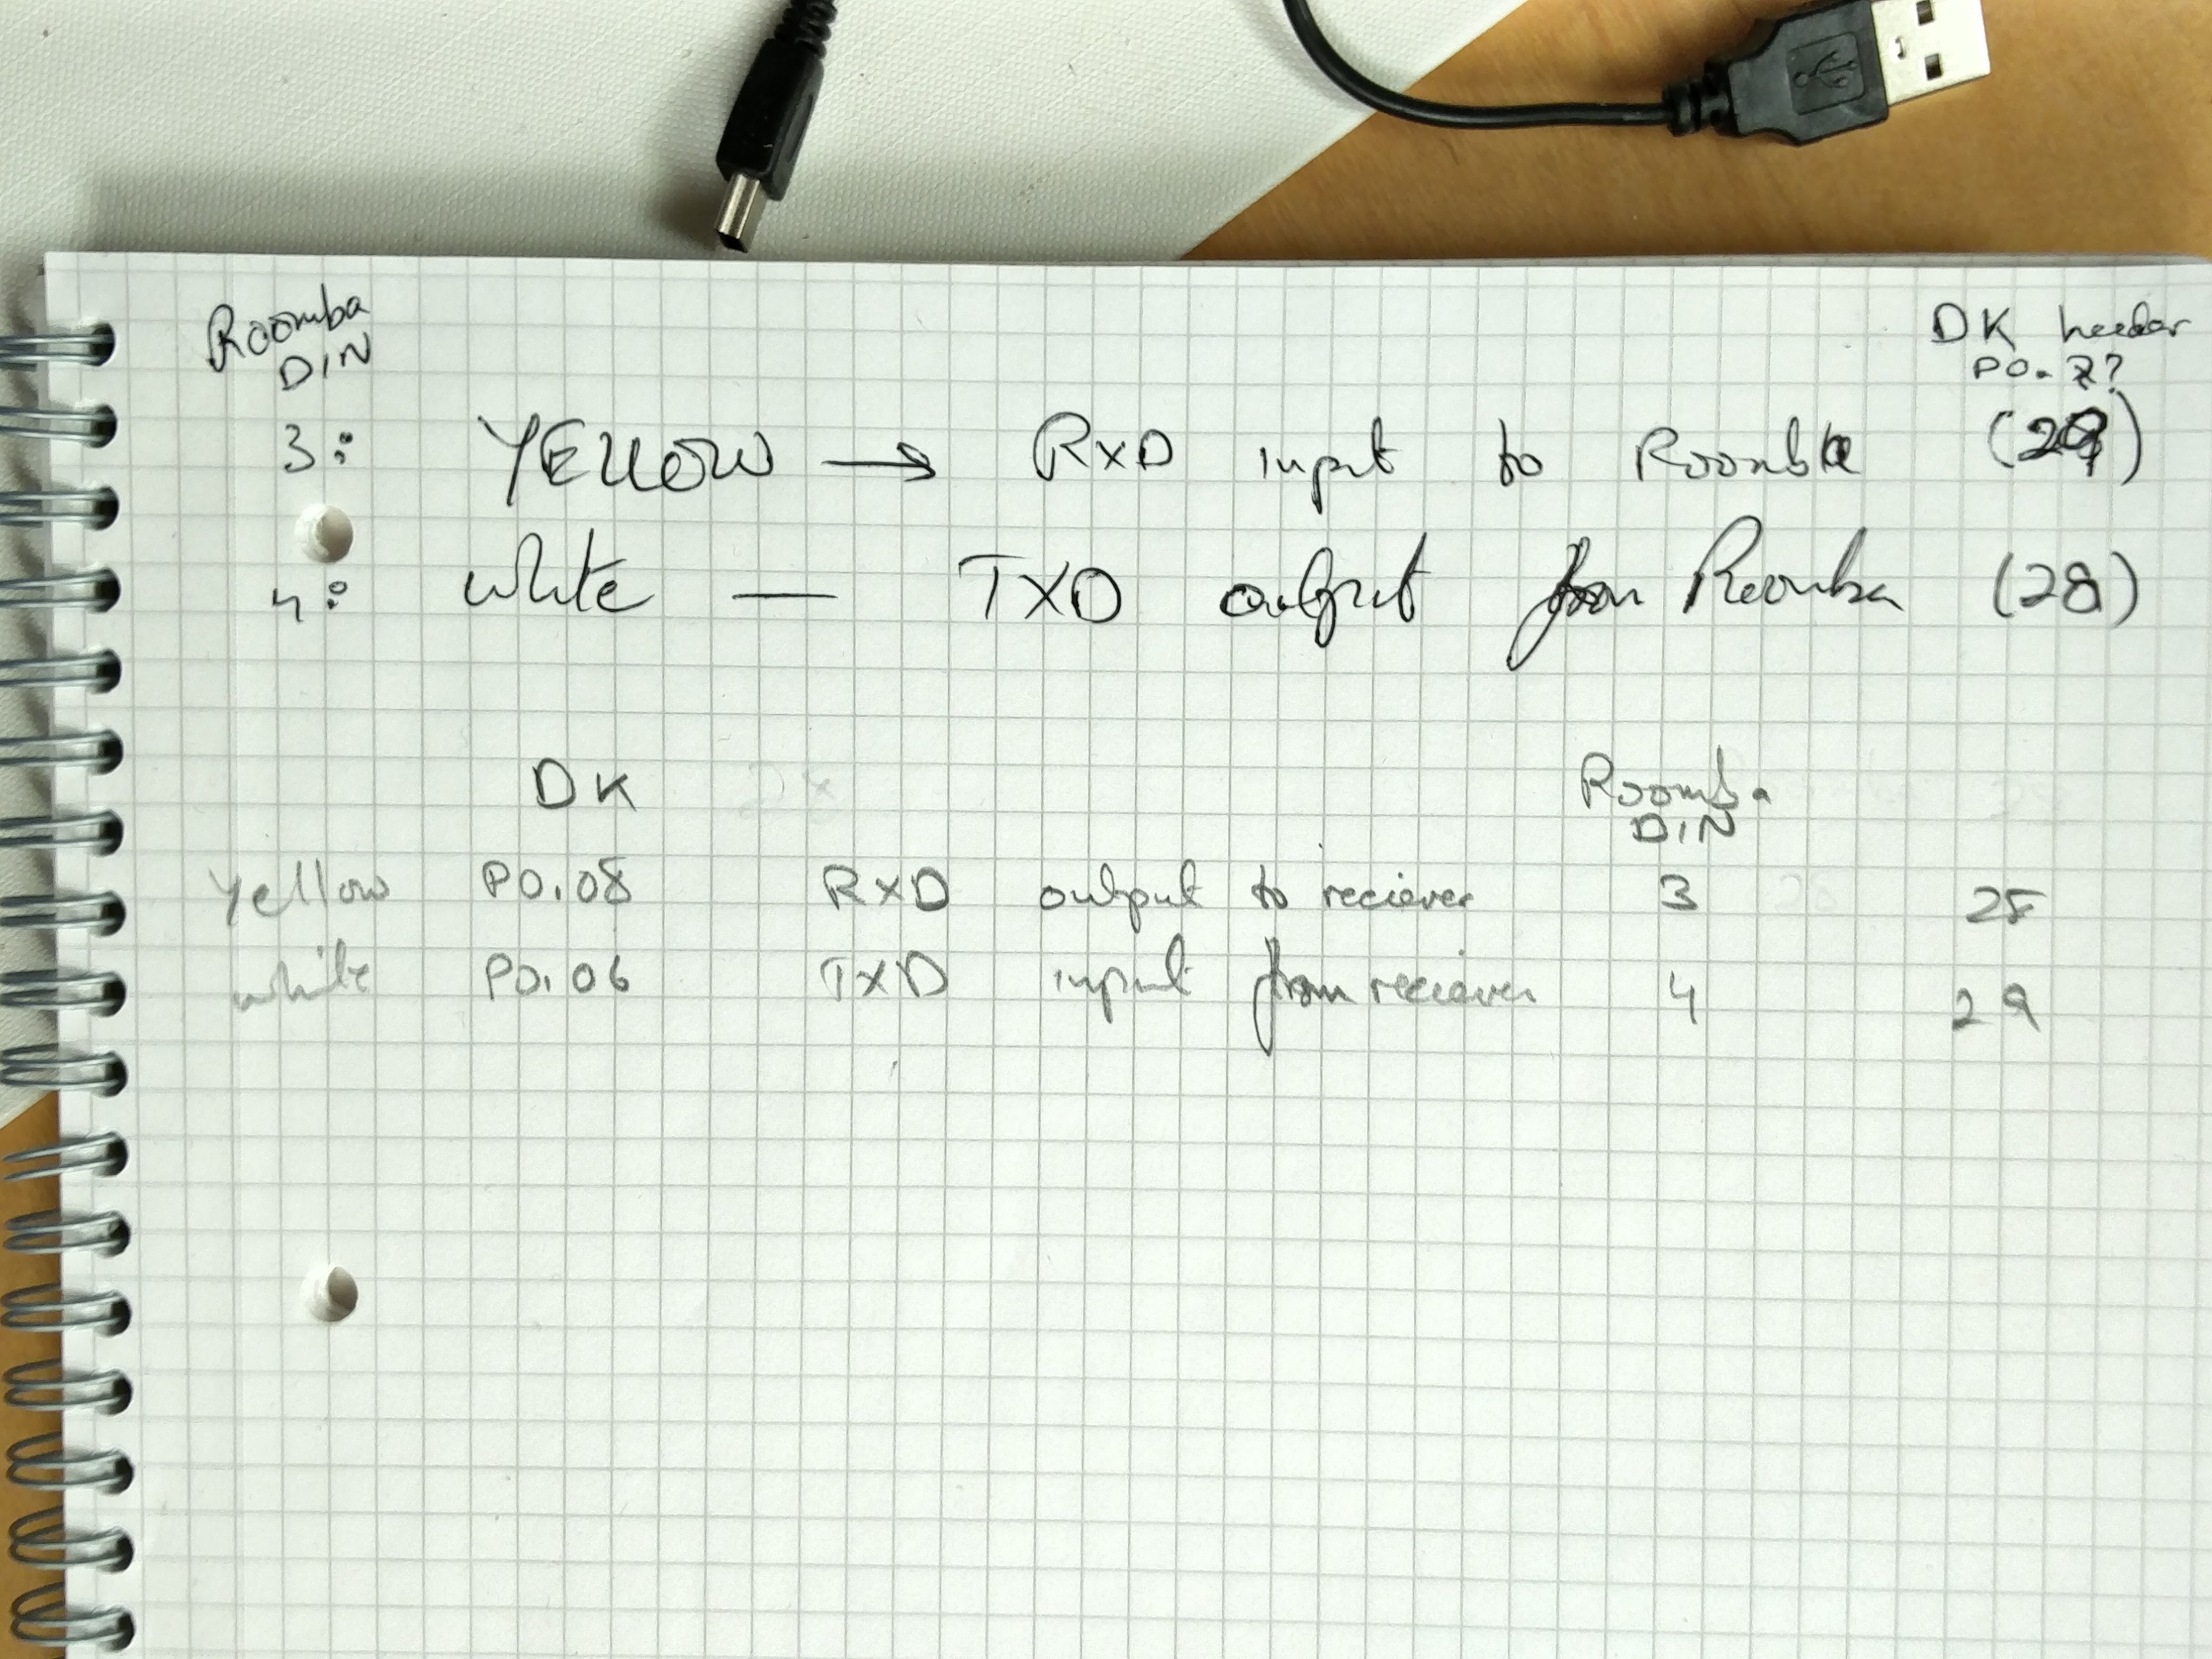 Roomba DK header
DIN P0. ??
3: YELLOW → RXD input to Roomba (29)
4: white — TXD output from Roomba (28)
DK Roomba
DIN
Yellow P0.08 RXD output to reciever 3 28
white P0.06 TXD input from reciever 4 29